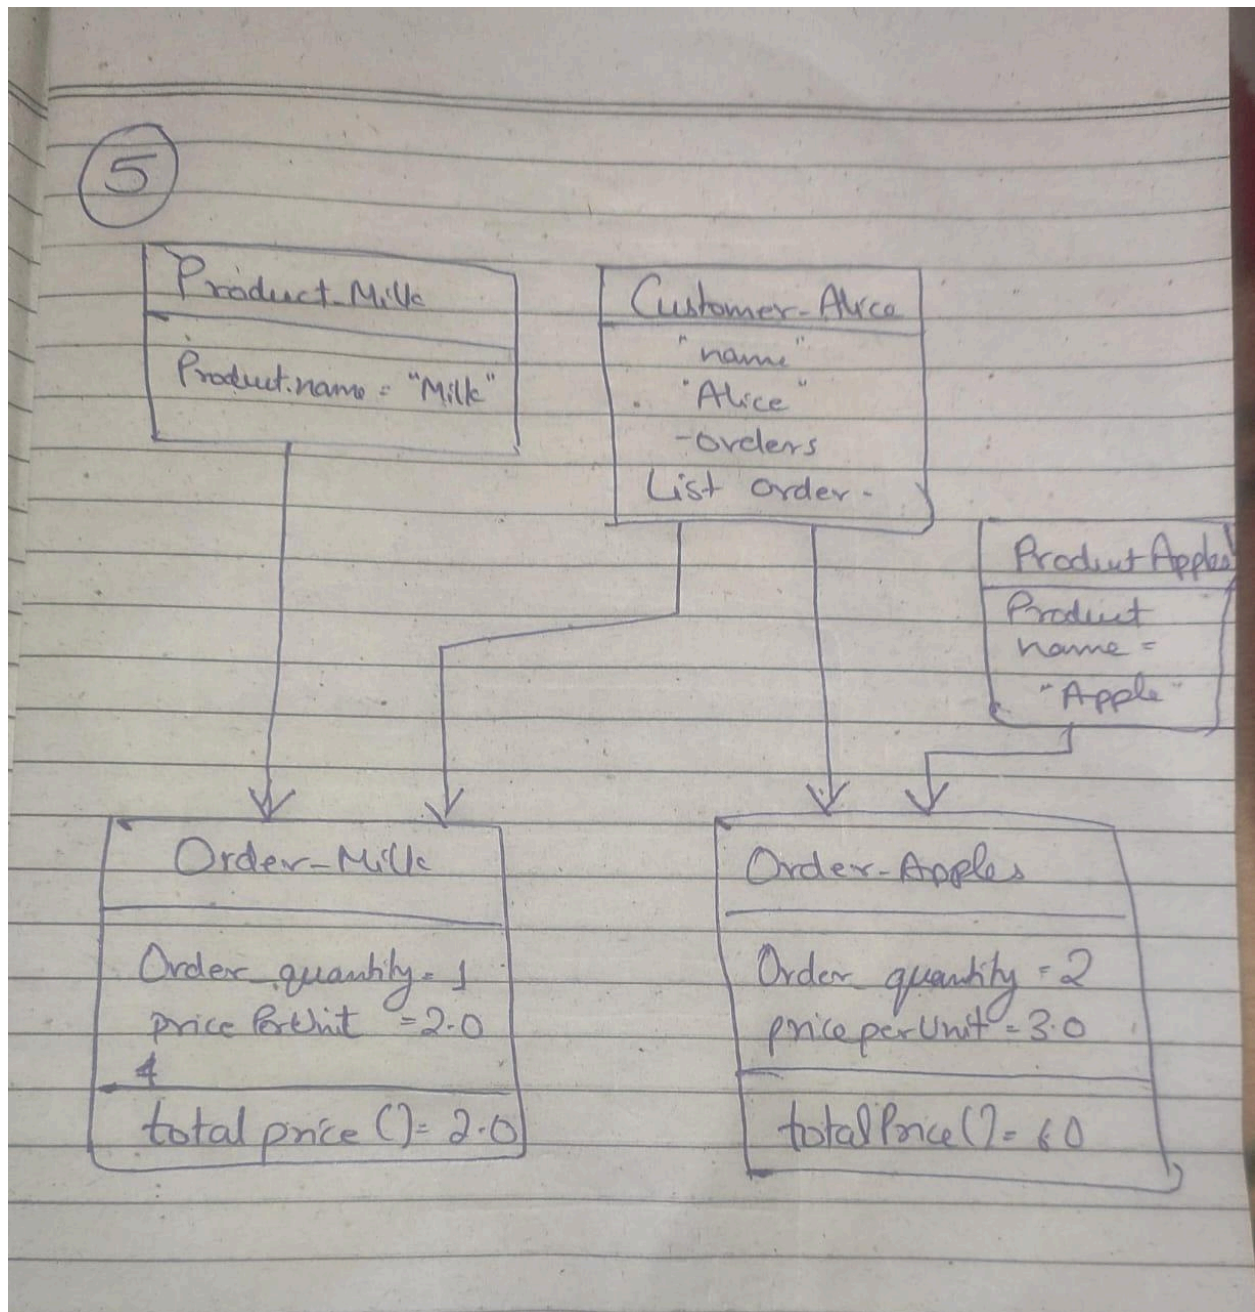 5
Product-Milk
Product.name = "Milk"
Customer-Alice
"name"
"Alice"
-orders
List order -
Product Apples
Product
name =
"Apple"
Order-Milk
Order quantity = 1
price PerUnit = 2.0
4
total price () = 2.0
Order-Apples
Order quantity = 2
price per Unit = 3.0
total Price () = 60